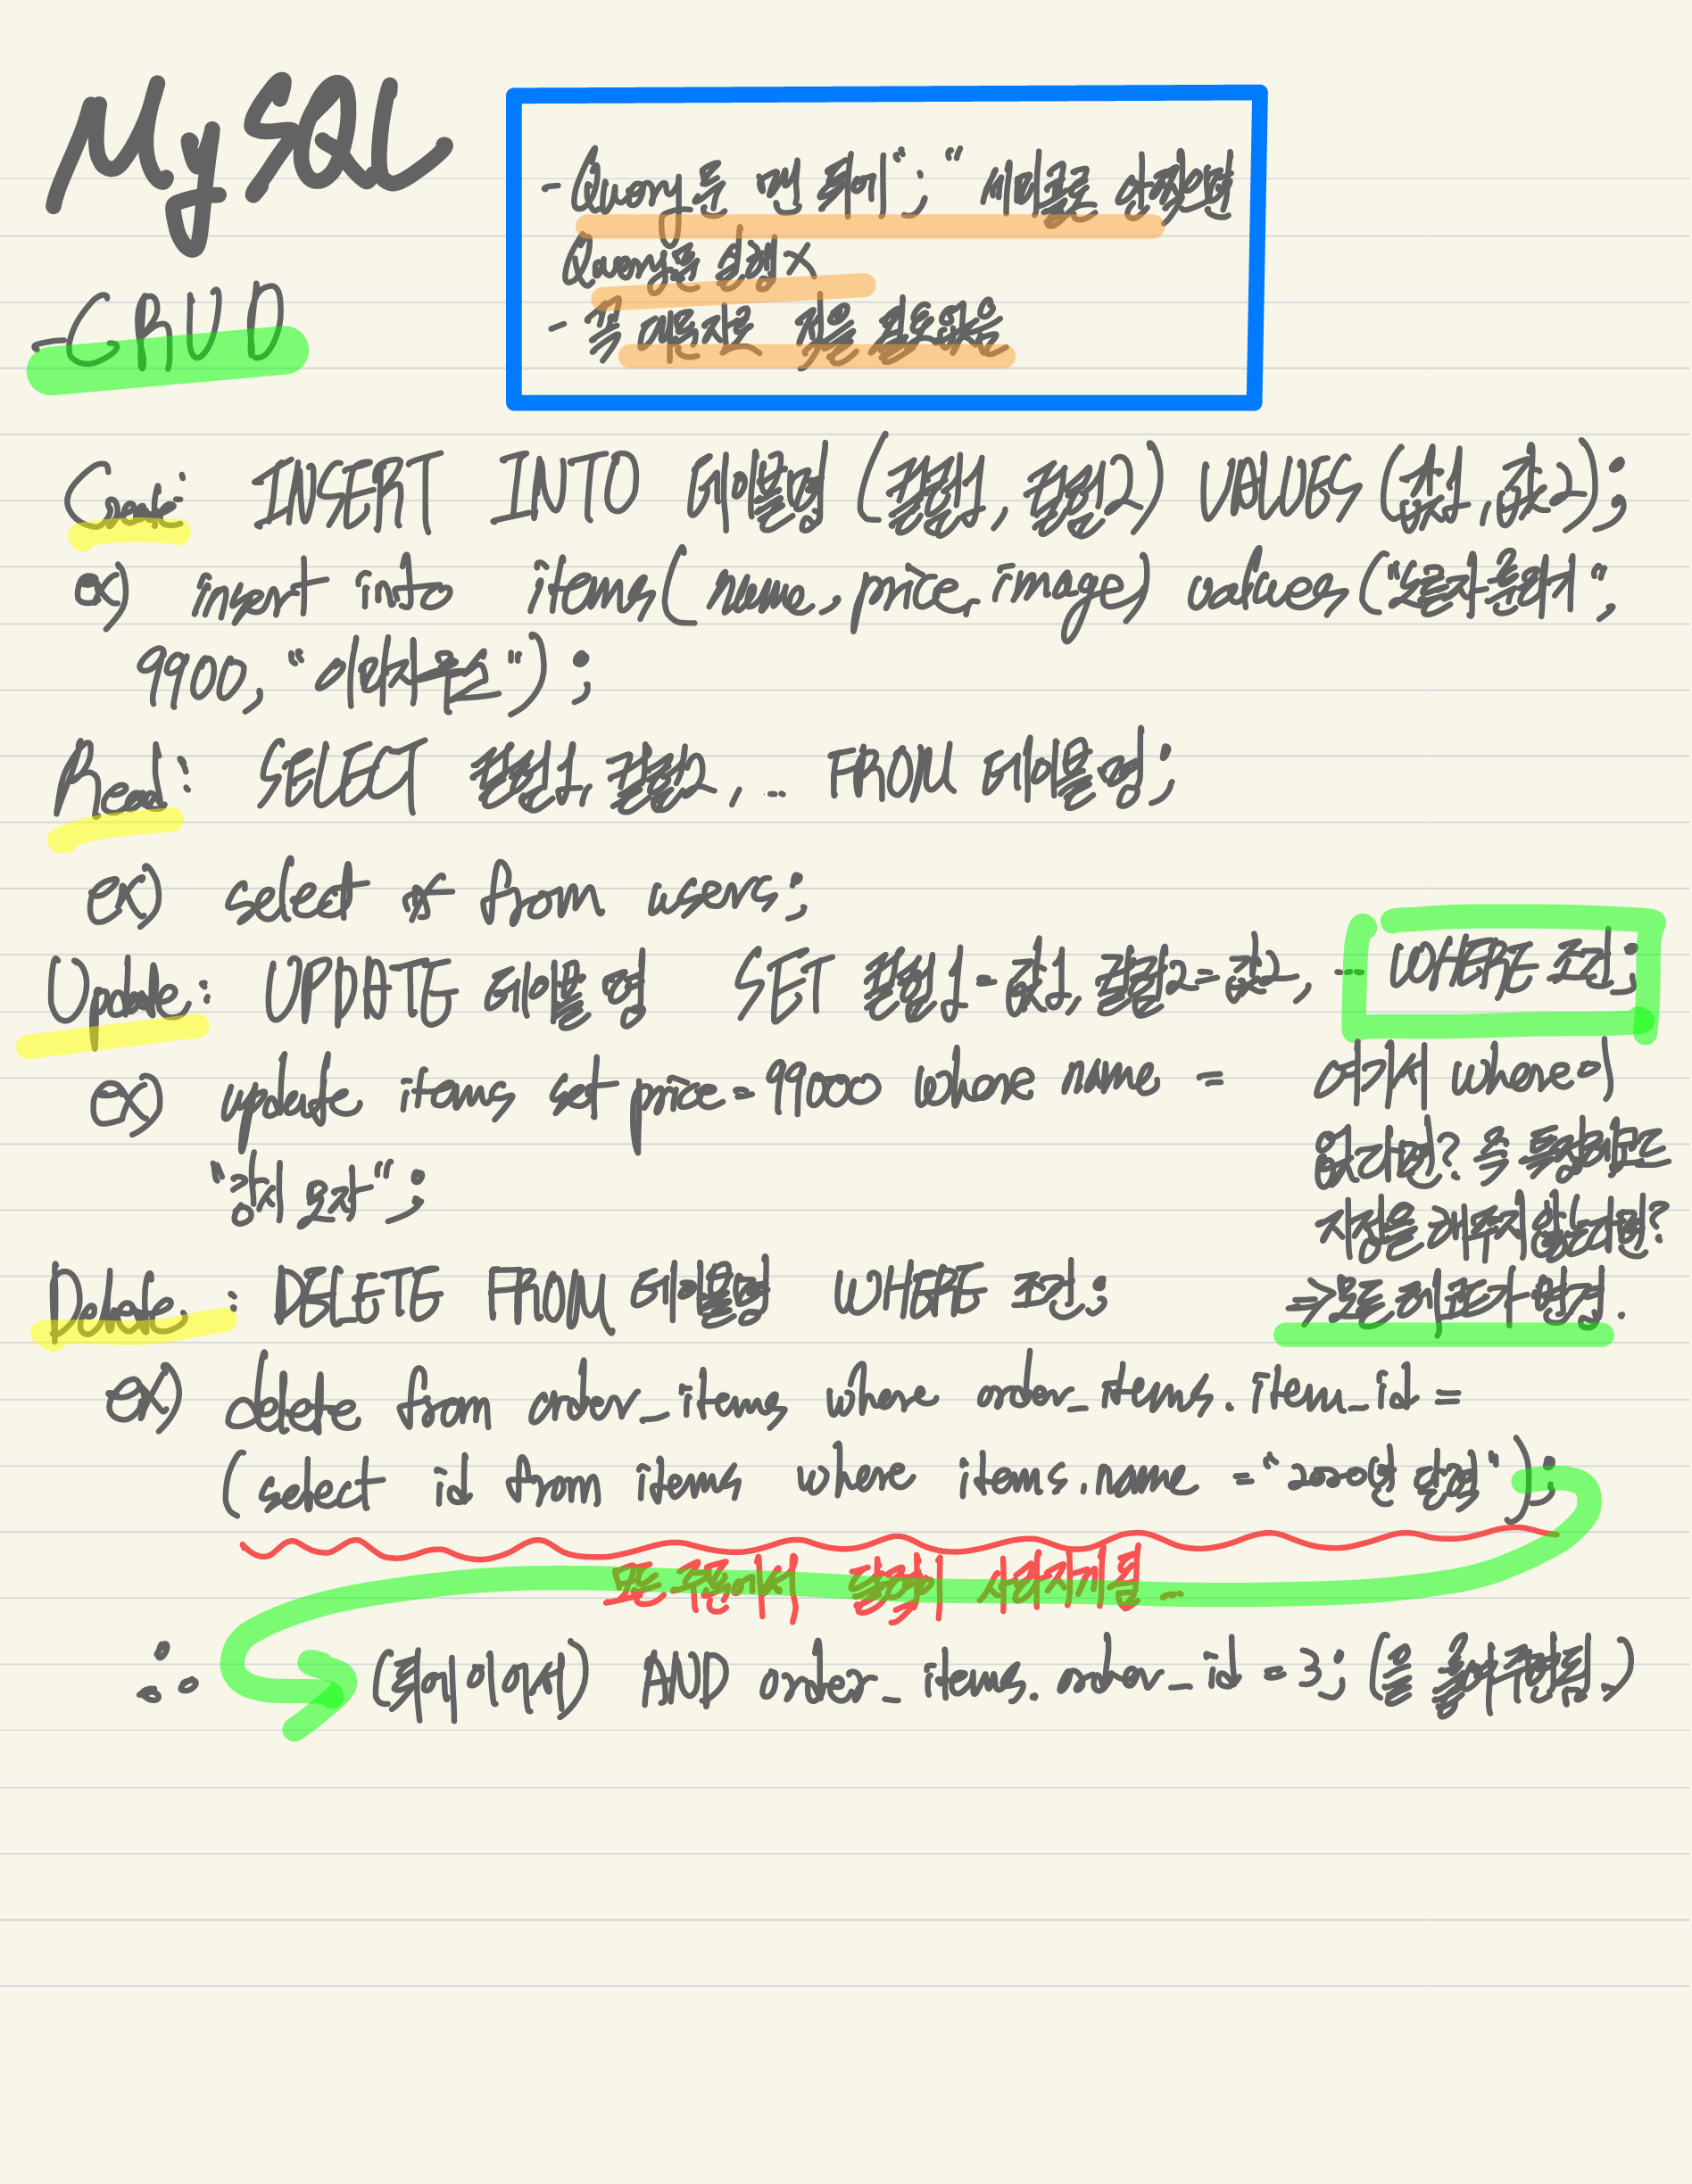 MySQL
-CRUD
-Query문 맨 뒤에 ";" 세미콜론 안적으면
Query문 실행X
- 꼭 대문자로 적을 필요없음
Create: INSERT INTO 테이블명 (컬럼명1, 컬럼명2) VALUES (값1, 값2);
ex) insert into items(name, price, image) values ("전자",
9900, "이미지주소");
Read: SELECT 컬럼명1, 컬럼명2, ... FROM 테이블명;
ex) select * from users;
Update: UPDATE 테이블명 SET 컬럼명1=값1, 컬럼명2=값2, --- WHERE 조건;
ex) update items set price=99000 where name =
여기서 where이
없다면? 즉 특정필드
"모자";
지정을 해주지 않는다면?
Delete : DELETE FROM 테이블명 WHERE 조건;
=>모든 레코드가 변경.
ex) delete from order_items where order_items.item_id =
(select id from items where items.name ="2020년 달력");
모든 주문에서 달력이 사라지게됨...
∴ (뒤에 이어서) AND order_items.order_id = 3; (을 붙여주면됨.)